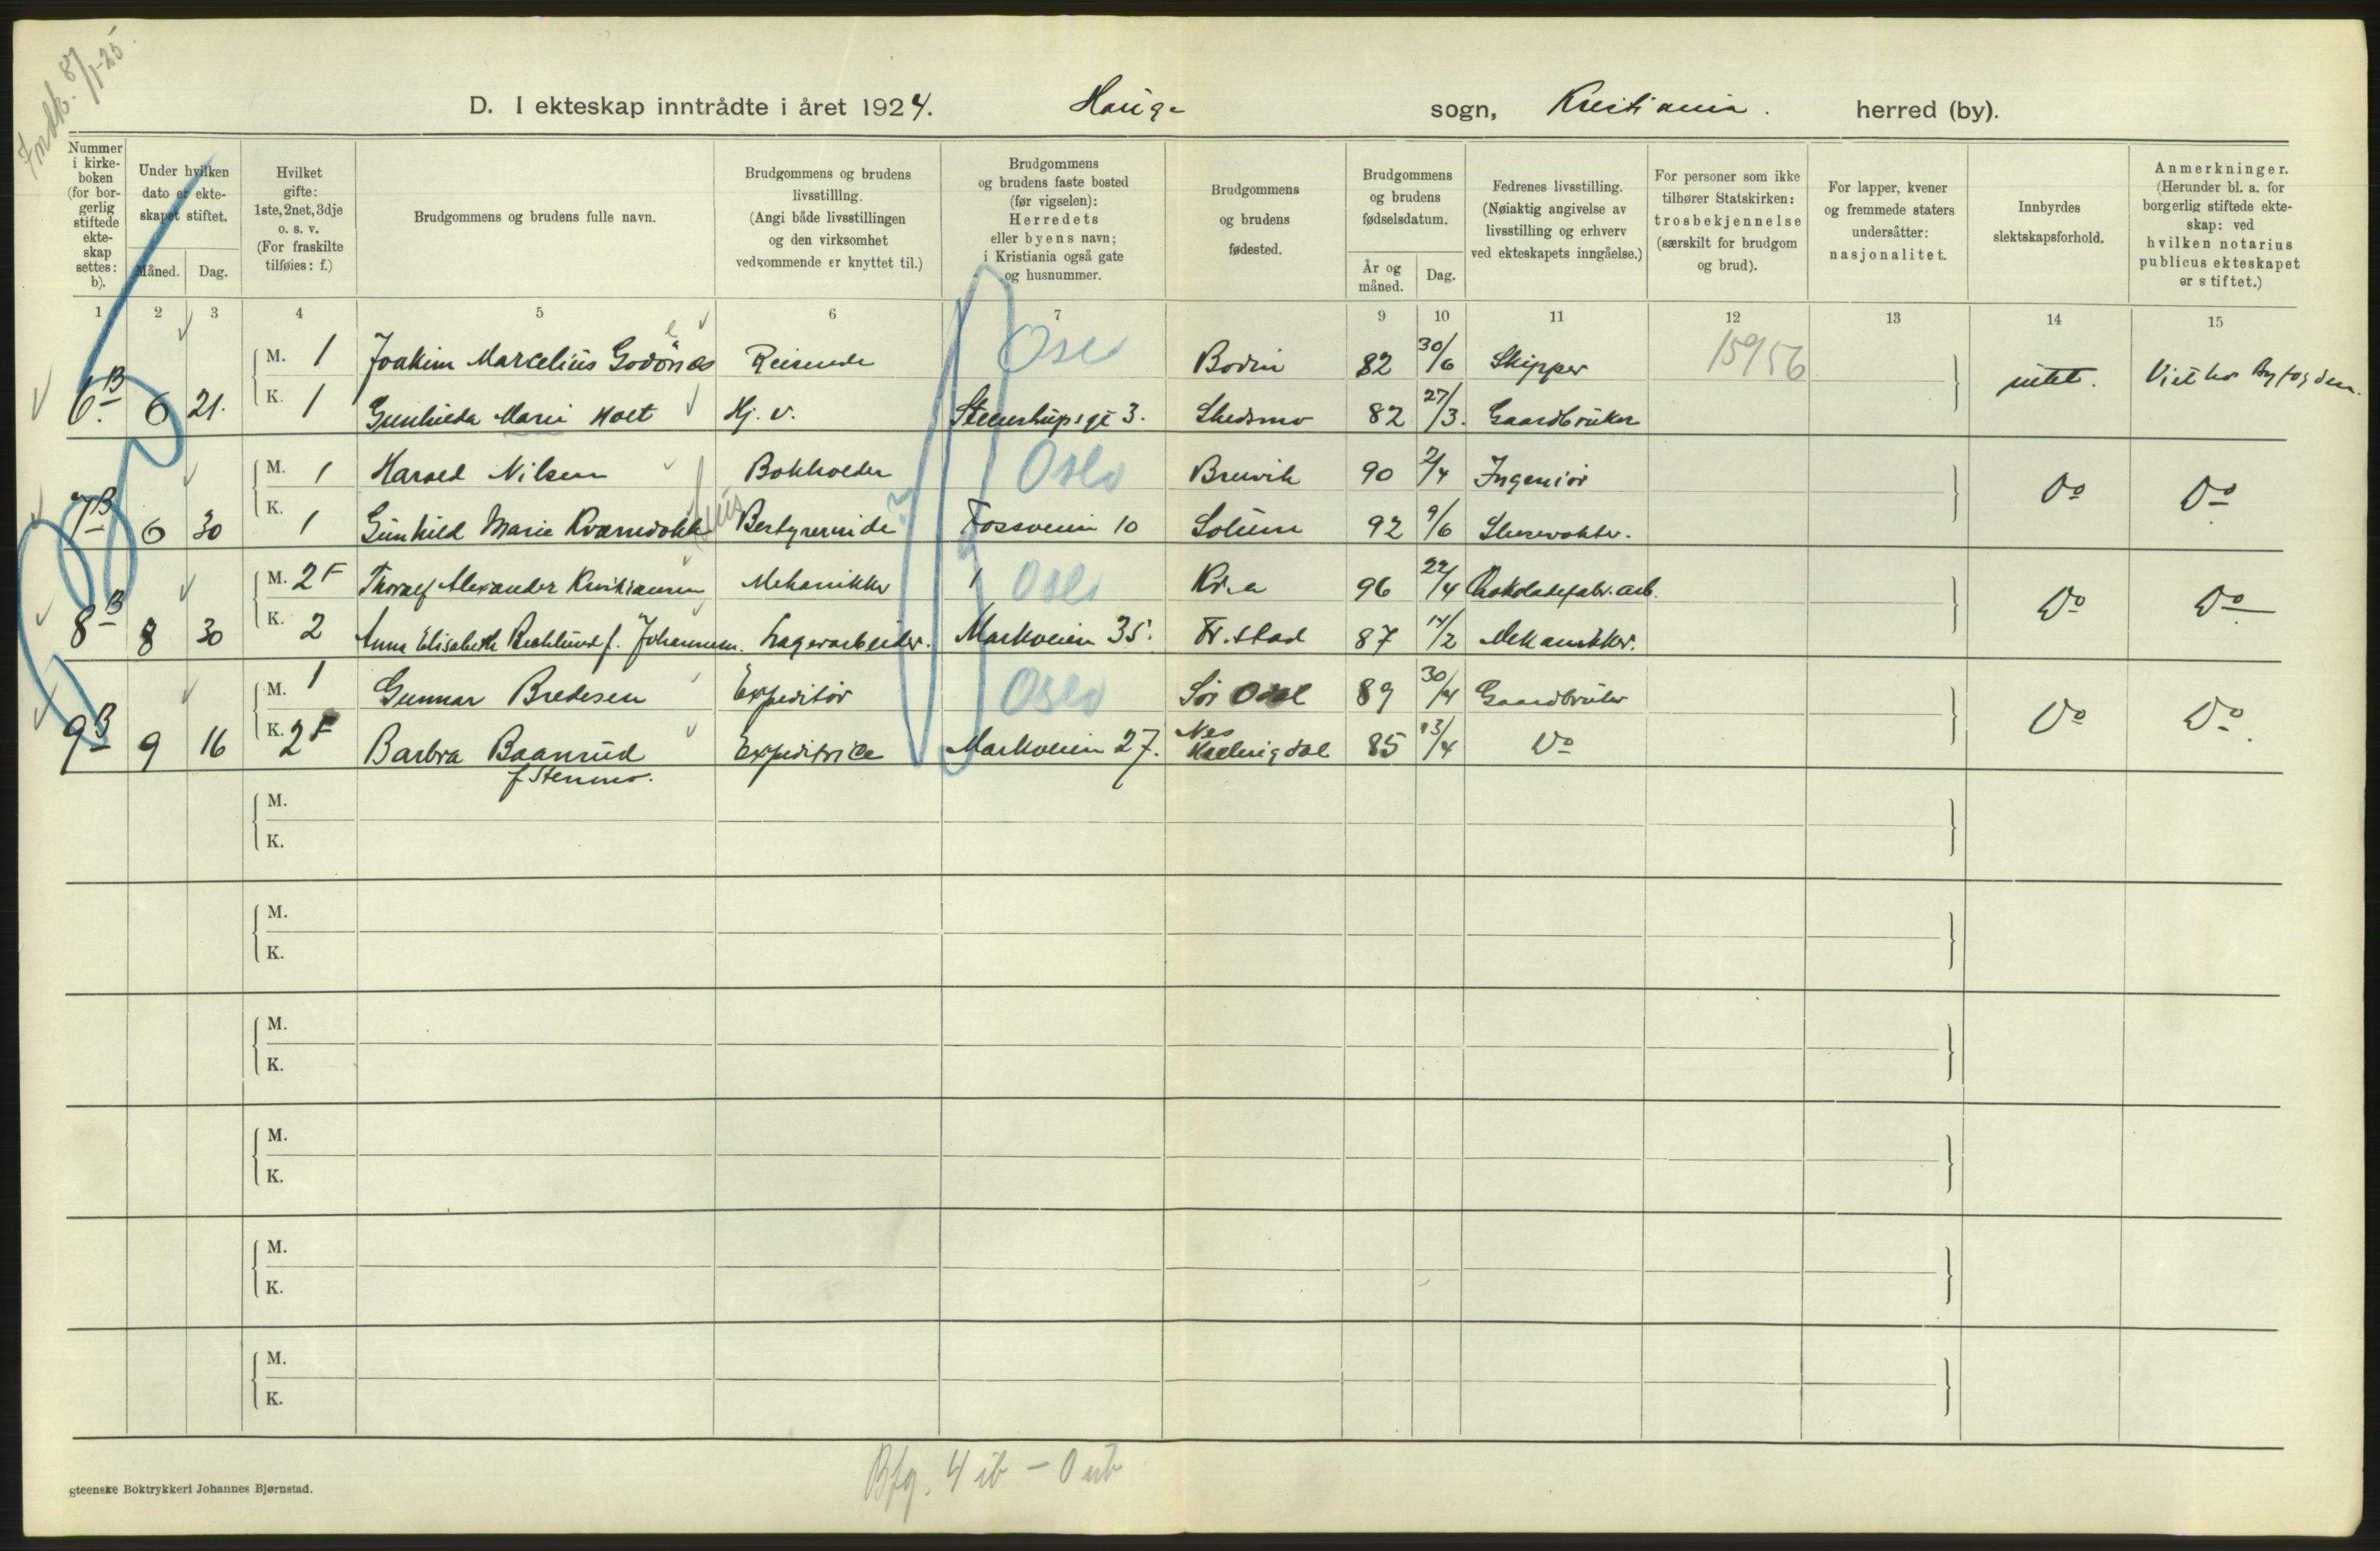 Indk. 8/1-25.
D. I ekteskap inntrådte i året 1924. Hauge sogn, Kristiania. herred (by).
Nummer i kirke-boken (for bor-gerlig stiftede ekte-skap settes: b).
Under hvilken dato er ekte-skapet stiftet.
Måned. Dag.
Hvilket gifte: 1ste, 2net, 3dje o. s. v. (For fraskilte tilføies: f.)
Brudgommens og brudens fulle navn.
Brudgommens og brudens livsstilling. (Angi både livsstillingen og den virksomhet vedkommende er knyttet til.)
Brudgommens og brudens faste bosted (før vigselen): Herredets eller byens navn; i Kristiania også gate og husnummer.
Brudgommens og brudens fødested.
Brudgommens og brudens fødselsdatum.
År og måned. Dag.
Fedrenes livsstilling. (Nøiaktig angivelse av livsstilling og erhverv ved ekteskapets inngåelse.)
For personer som ikke tilhører Statskirken: trosbekjennelse (særskilt for brudgom og brud).
For lapper, kvener og fremmede staters undersåtter: nasjonalitet.
Innbyrdes slektskapsforhold.
Anmerkninger. (Herunder bl. a. for borgerlig stiftede ekte-skap: ved hvilken notarius publicus ekteskapet er stiftet.)
1 2 3 4 5 6 7 9 10 11 12 13 14 15
M. 1 Joakim Marcelius Godönes Reisende Oslo Bodin 82 30/6 Skipper 15956
6B 6 21. K. 1 Gunhilda Marie Holt Hj. v. Steenstrups gt 3. Skedsmo 82 27/3. Gaardbruker intet. Viet hos Byfogden.
M. 1 Harald Nilsen Bokholder Oslo Brevik 90 2/4 Ingeniör
7B 6 30 K. 1 Gunhild Marie Kværndokk Bestyrerinde Fossveien 10 Solum 92 9/6 Slusevokter. Do Do
M. 2 F Thoralf Alexander Kristiansen Mekanikker Oslo Kr.a 96 22/4 Chokoladefabr. arb.
8B 8 30 K. 2 Anna Elisabeth f. Johannesen. Lagerarbeider. Markveien 35. Fr.stad 87 14/2 Mekanikker. Do Do
M. 1 Gunnar Bredesen Expeditör Oslo Sör Odal 89 30/4 Gaardbruker
9B 9 16 K. 2 F Barbra Baanrud Expeditrice Markveien 27. Nes Hallingdal 85 13/4 Do Do Do.
f Stenmo.
M.
K.
M.
K.
M.
K.
M.
K.
M.
K.
M.
K.
Bfg. 4 ib - 0 ub
steenske Boktrykkeri Johannes Bjørnstad.